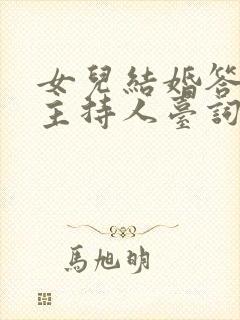 女兒結婚答
主持人臺詞
馬旭明